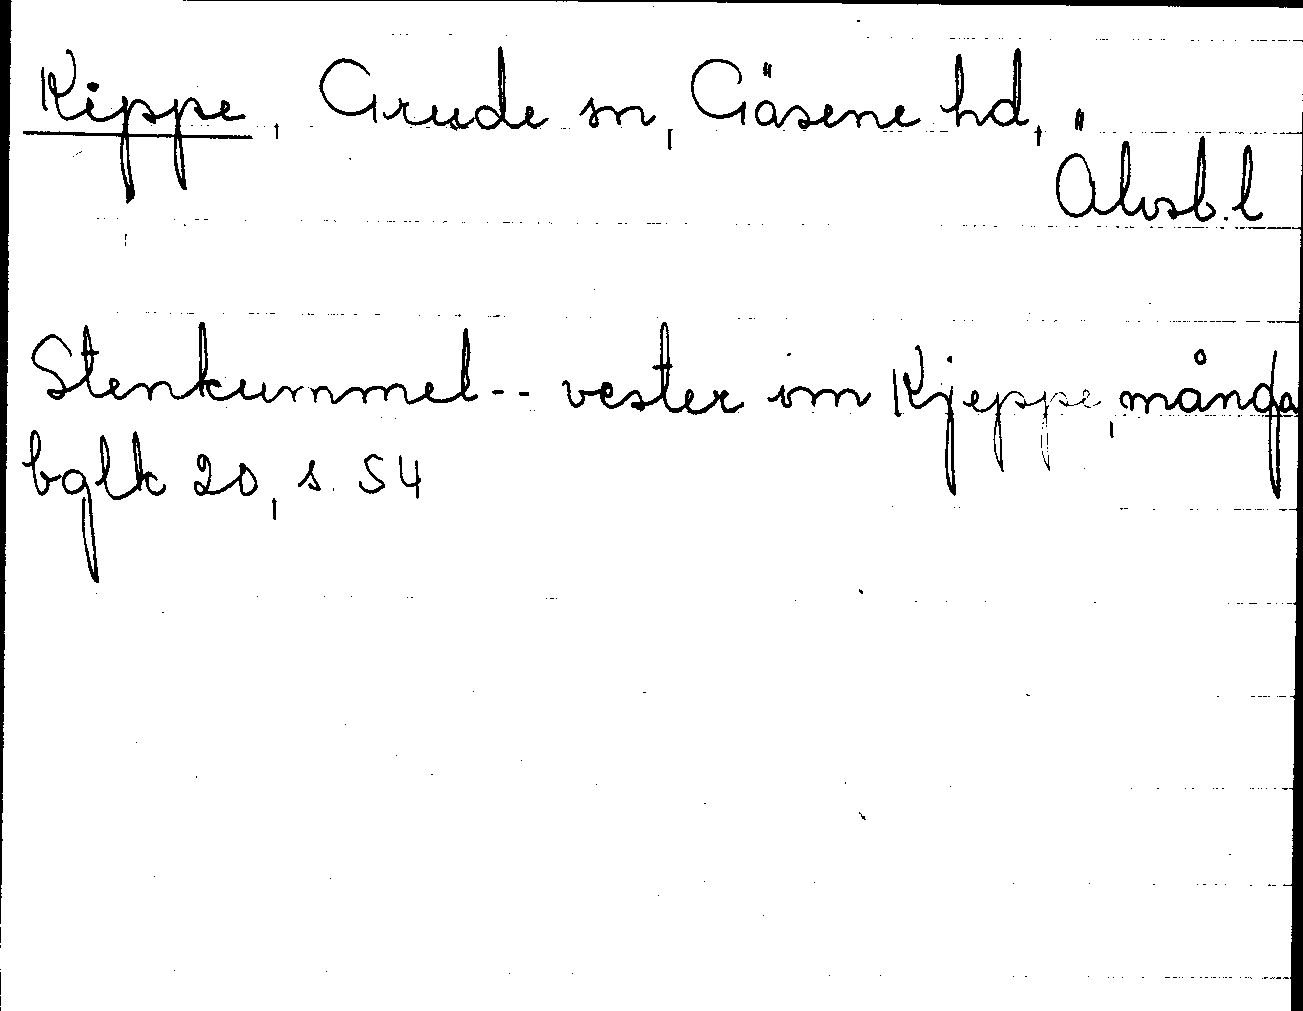 Kippe, Grude sn, Gäsene hd,
Älvsb. l
Stenkummel -- vester om Kjeppe, många
bglk 20, s. 54